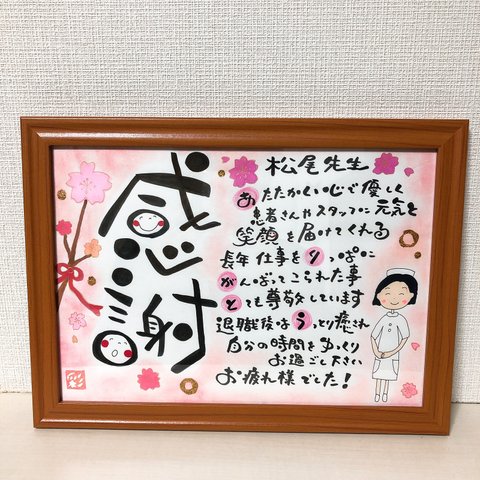 感謝
松尾先生
あたたかい心で優しく
患者さんやスタッフに元気と
笑顔を届けてくれる
長年仕事をりっぱに
がんばってこられた事
とても尊敬しています
退職後はうっとり癒され
自分の時間をゆっくり
お過ごし下さい
お疲れ様でした!